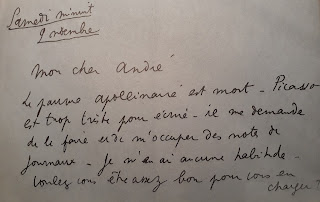 Samedi minuit
9 novembre
Mon cher André
Le pauvre apollinaire est mort - Picasso
est trop triste pour écrire - il me demande
de le faire et de m'occuper des notes de
journaux - Je n'en ai aucune habitude -
voulez vous être assez bon pour vous en
charger ?